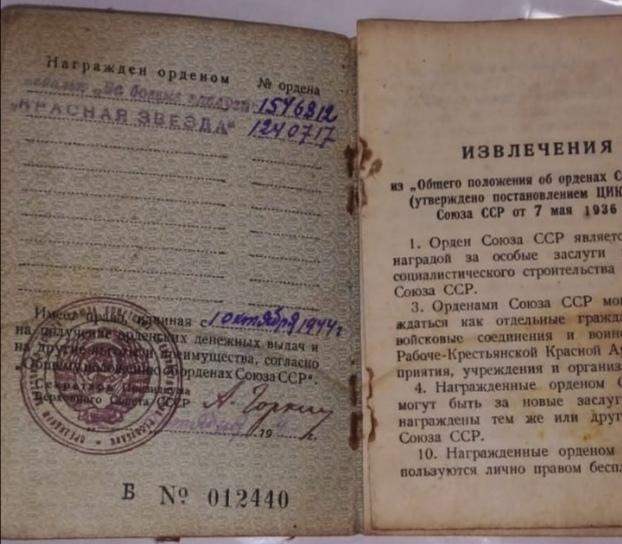 Награжден орденом № ордена
медалью „За боевые заслуги“ 1546812
„КРАСНАЯ ЗВЕЗДА“ 1240717
Имеет право, начиная с 1 октября 1944 г
на получение орденских денежных выдач и
на другие льготы и преимущества, согласно
„Общему положению об орденах Союза ССР“.
Секретарь Президиума
Верховного Совета СССР А. Горкин
19
Б № 012440
ИЗВЛЕЧЕНИЯ
из „Общего положения об орденах С
(утверждено постановлением ЦИК
Союза ССР от 7 мая 1936
1. Орден Союза ССР являетс
наградой за особые заслуги
социалистического строительства
Союза ССР.
3. Орденами Союза ССР мо
ждаться как отдельные гражд
войсковые соединения и воин
Рабоче-Крестьянской Красной Ар
приятия, учреждения и организ
4. Награжденные орденом С
могут быть за новые заслуг
награждены тем же или друг
Союза ССР.
10. Награжденные орденом
пользуются лично правом беспл